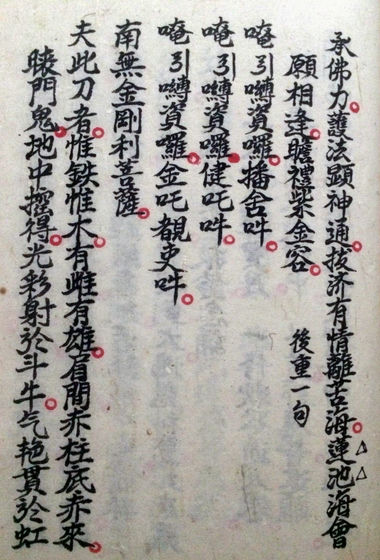 承佛力護法顯神通拔济有情離苦海蓮池海會
願相逢瞻禮紫金容 後重一句
唵引嚩賀囉播舍吽
唵引嚩賀囉健吒吽
唵引嚩賀囉金吒覩吏吽
南無金剛利菩薩
夫此刀者惟鉄惟木有雌有雄有閒赤柱底赤來
門鬼地中得光彩射於斗牛气艳貫於虹